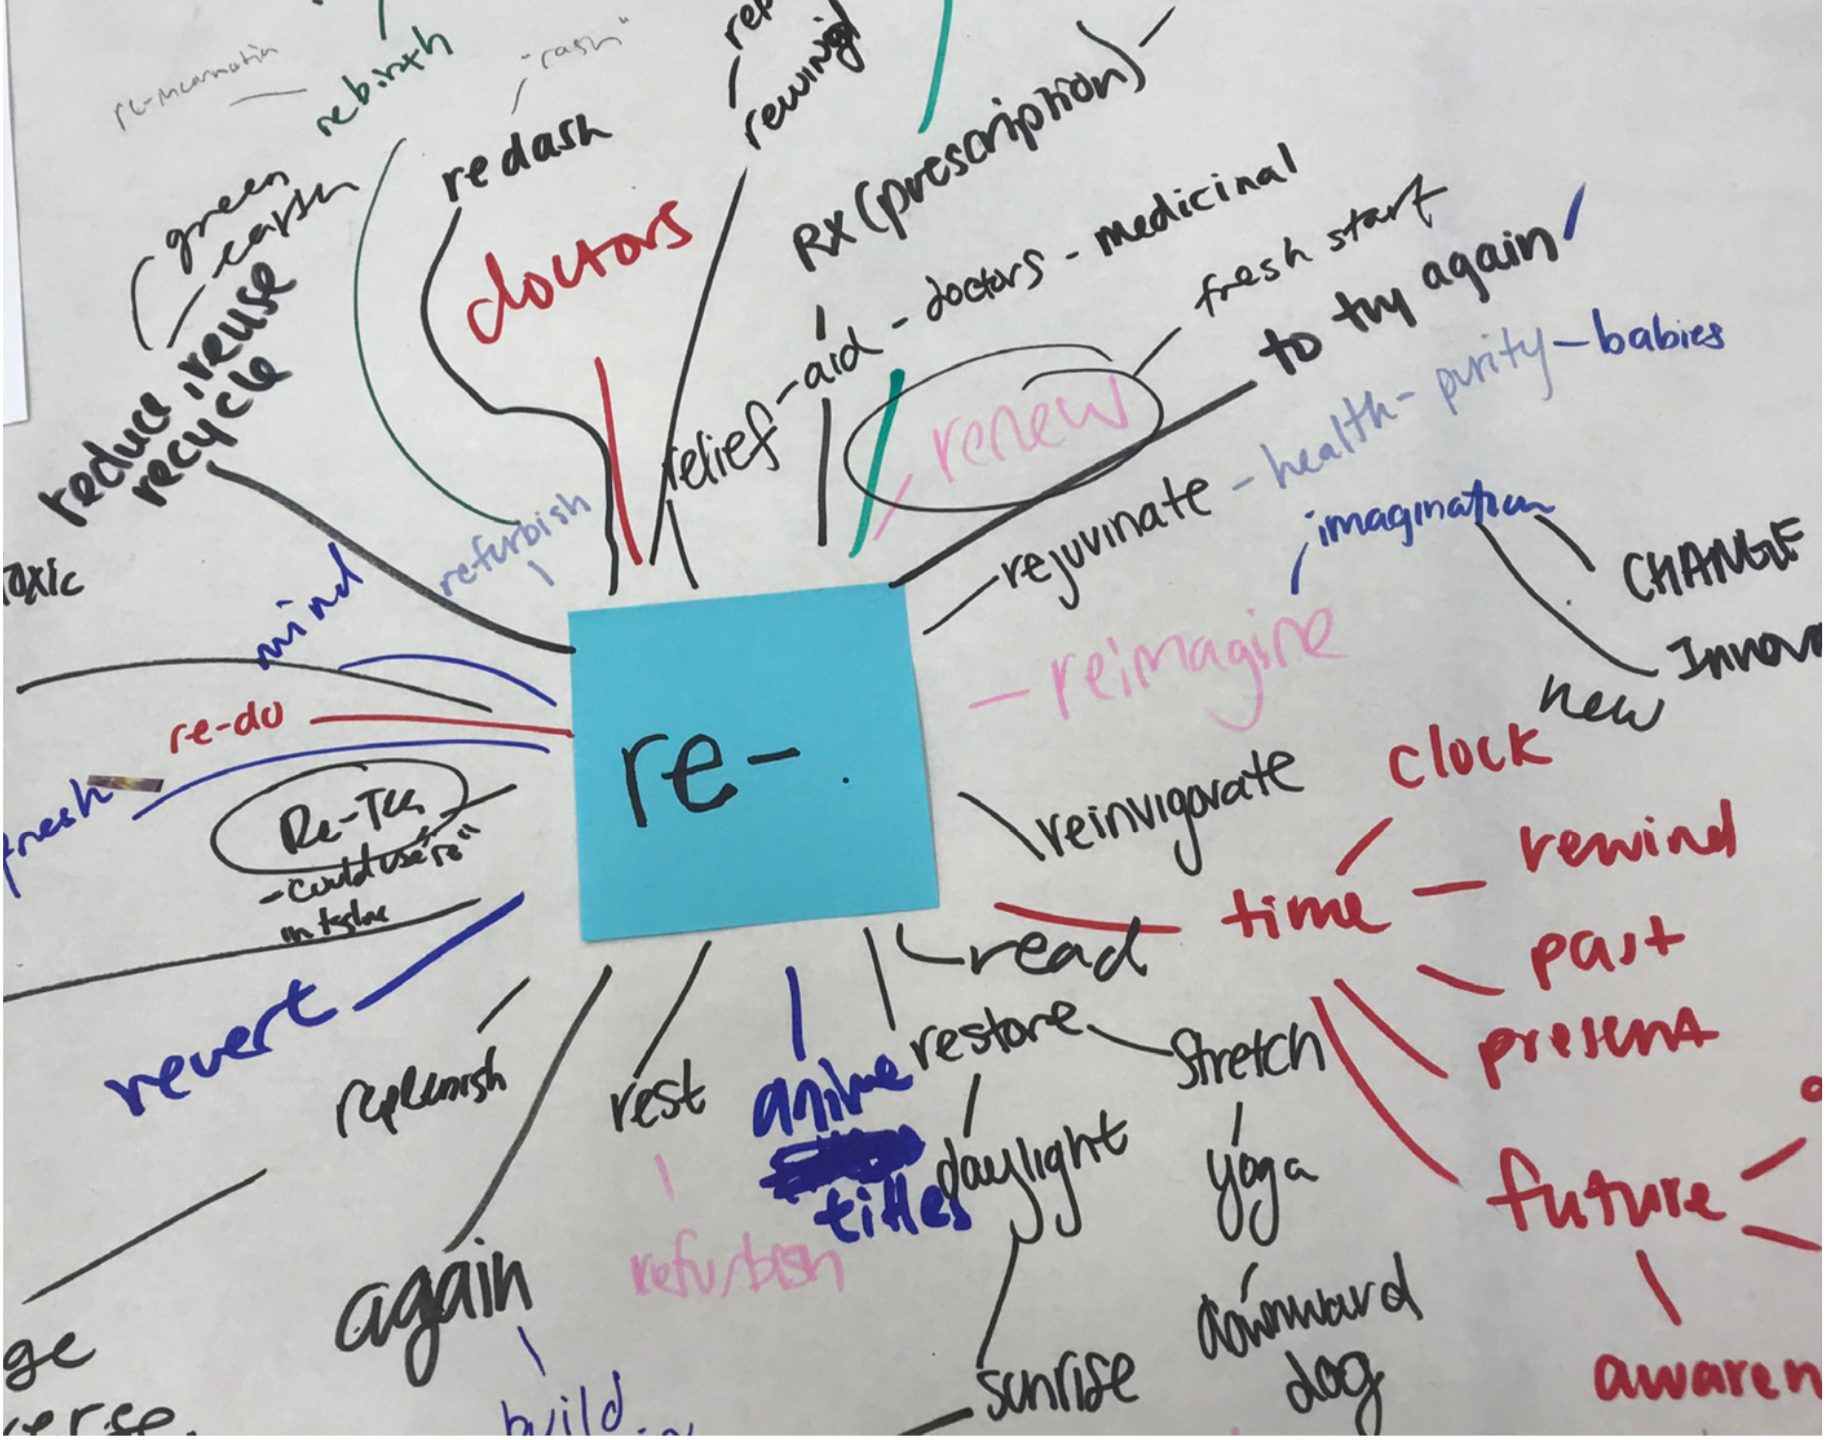 rebirth
"rash"
rewind
redash
Rx (prescription)
green
earth
doctors
relief - aid - doctors - medicinal
fresh start
to try again
reduce, reuse
recycle
renew
rejuvinate - health - purity - babies
imagination
CHANGE
refurbish
mind
reimagine
new
re-do
re-
clock
reinvigorate
rewind
Re-Tea
- could use "re"
time
past
read
present
revert
restore
stretch
replenish
rest
anime
titles
daylight
yoga
future
again
refurbish
downward
dog
sunrise
build